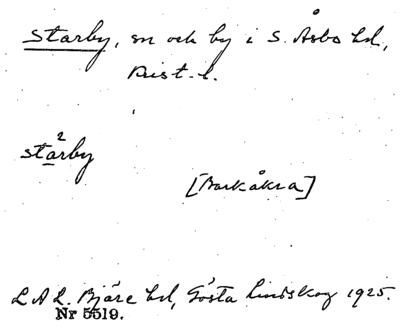 Starby, sn och by i S. Åsbo hd,
Krist. l.
stạ²rby
[Barkåkra]
L A L. Bjäre hd, Gösta Lindskog 1925.
Nr 5519.